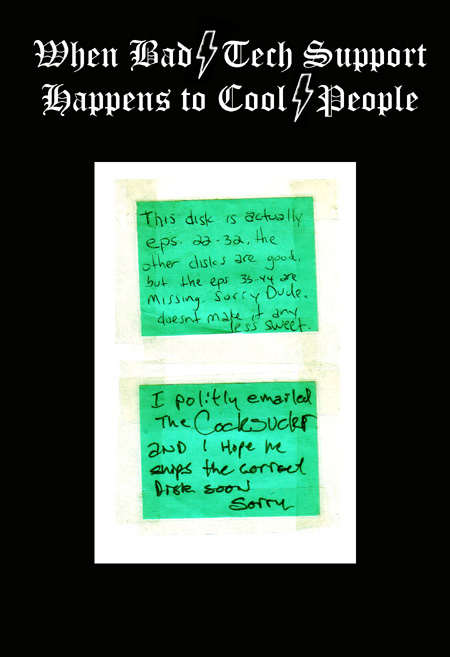 When Bad Tech Support
Happens to Cool People
This disk is actually
eps. 22-32, the
other disks are good.
but the eps 33-44 are
missing. Sorry Dude.
doesnt make it any
less sweet.
I politly emailed
The Cocksucker
and I Hope he
ships the correct
Disk soon
Sorry